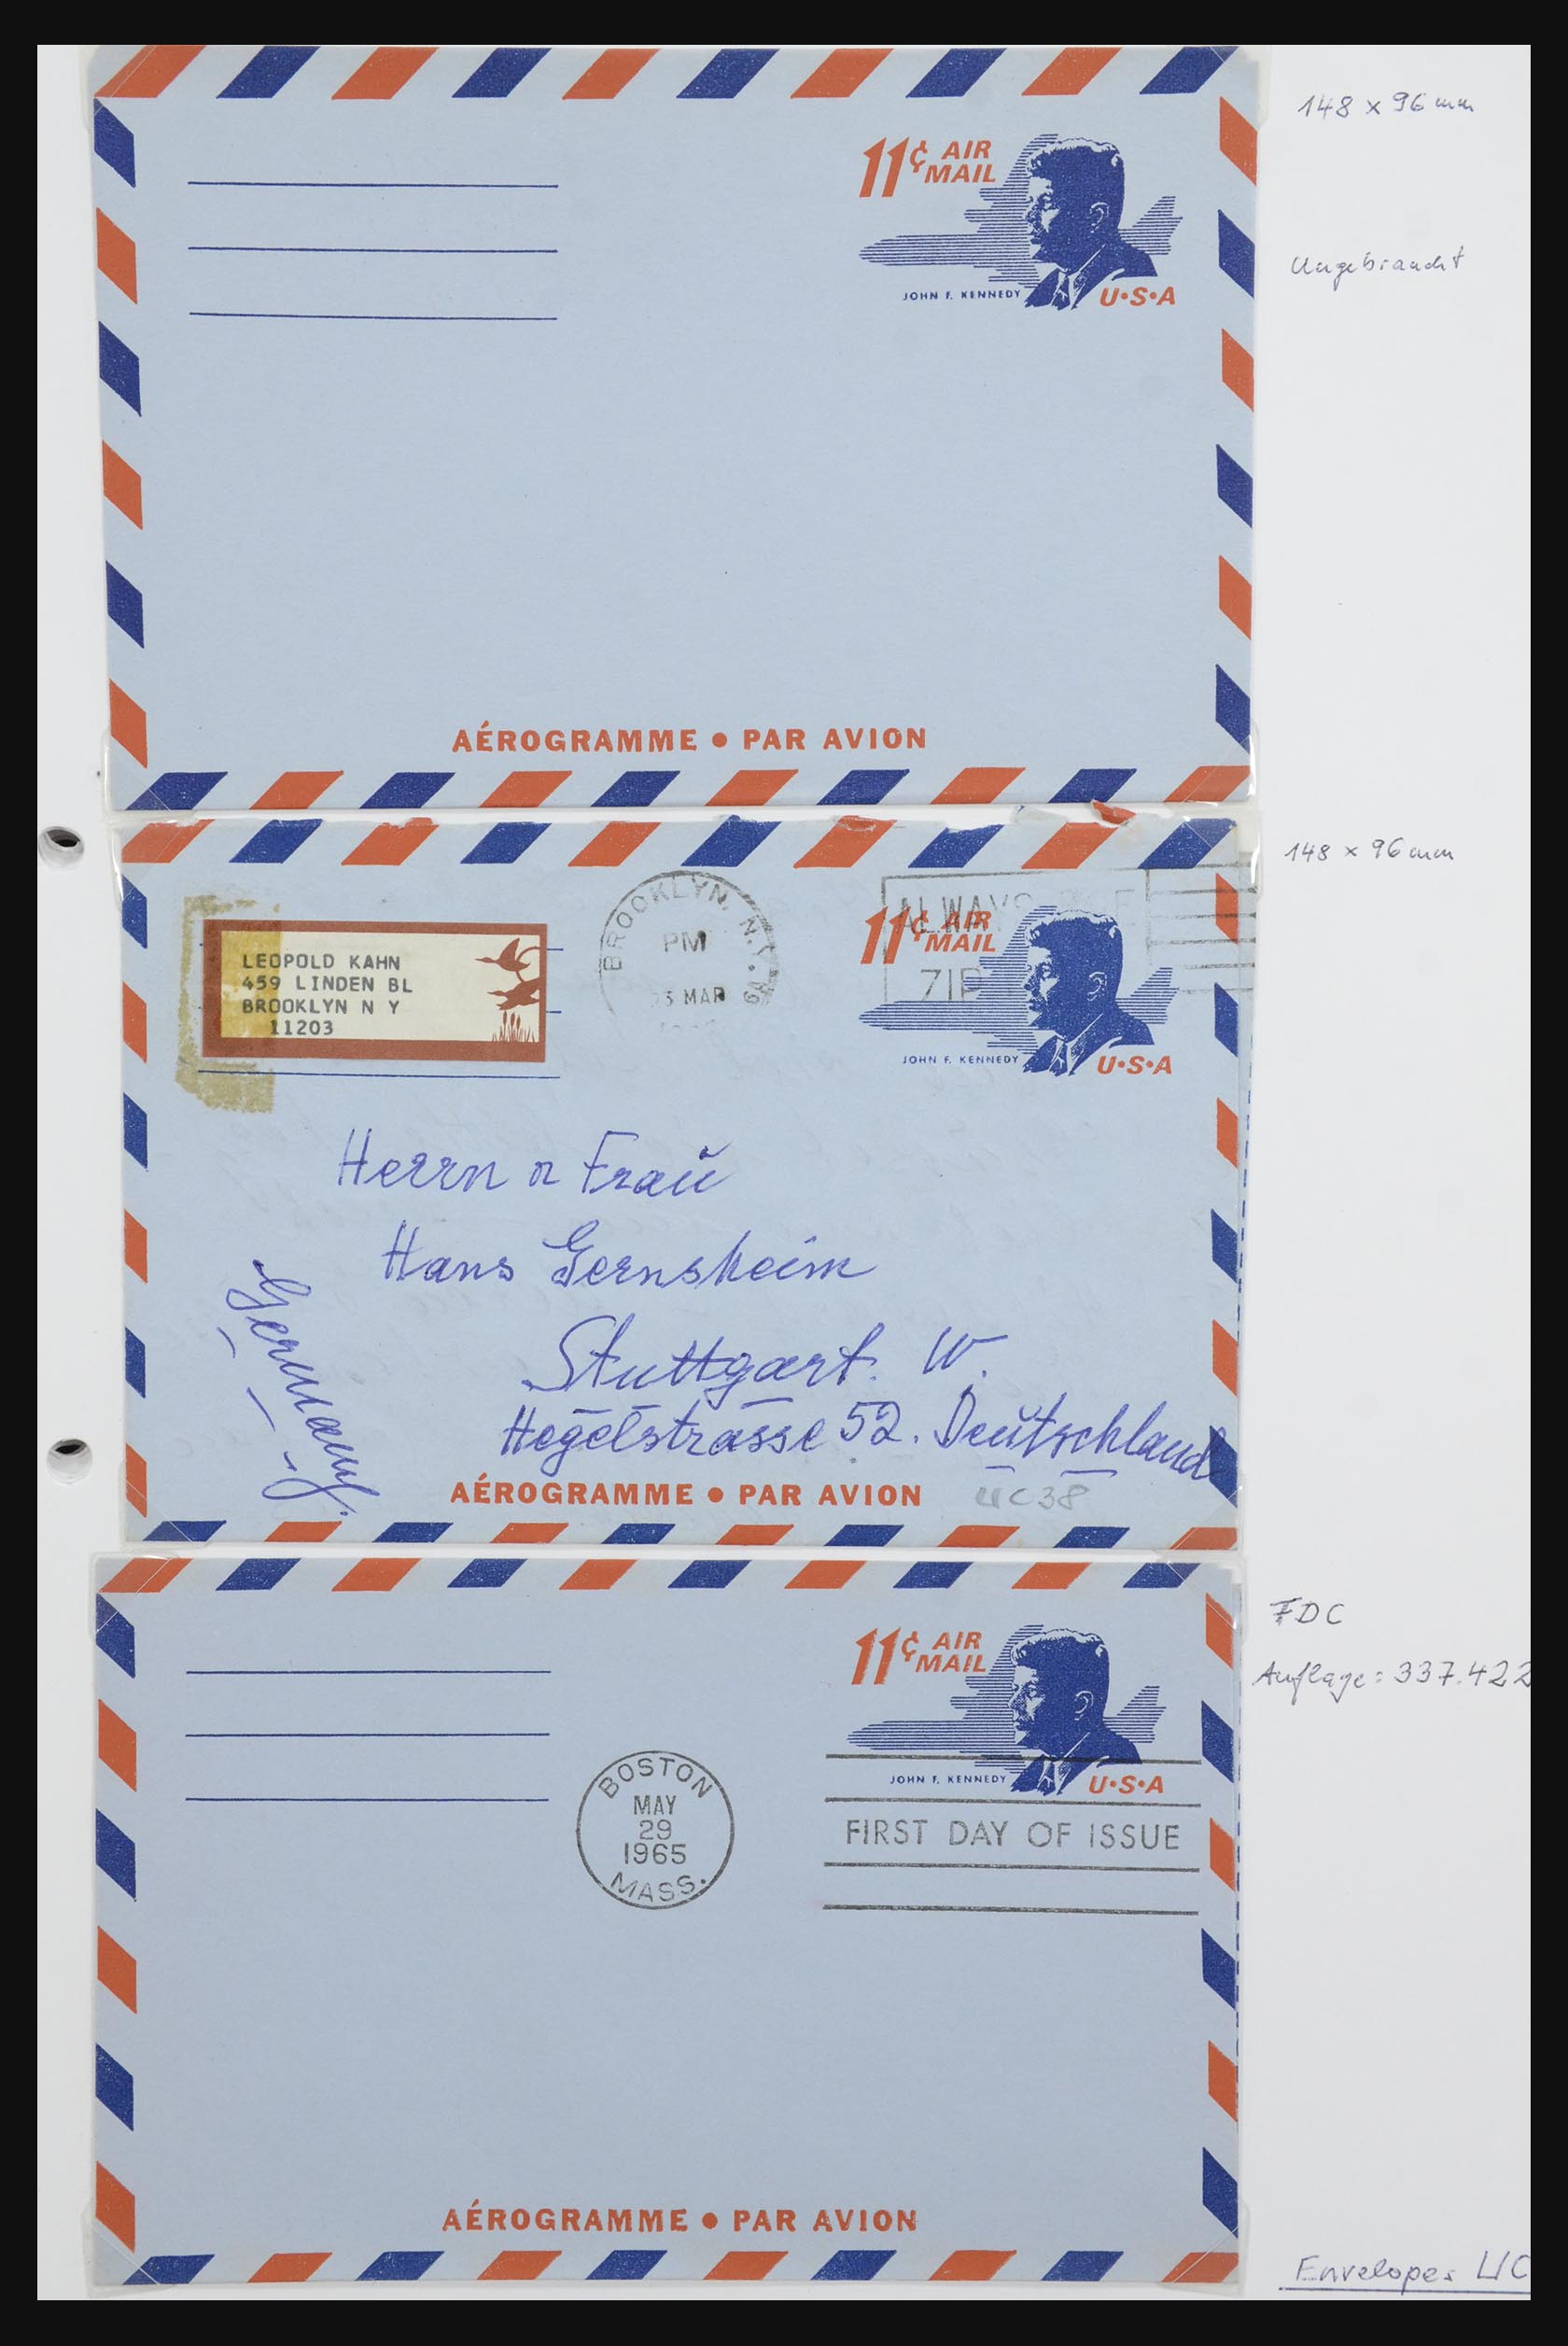 11¢ AIR
MAIL
JOHN F. KENNEDY
U•S•A
AÉROGRAMME • PAR AVION
148 x 96 mm
Ungebraucht
LEOPOLD KAHN
459 LINDEN BL
BROOKLYN N Y
11203
BROOKLYN, N.Y.
PM
MAR
ALWAYS
ZIP
11¢ AIR
MAIL
JOHN F. KENNEDY
U•S•A
Herrn n Frau
Hans Gernsheim
Stuttgart. W.
Hegelstrasse 52. Deutschland
Germany.
AÉROGRAMME • PAR AVION
UC38
148 x 96 mm
11¢ AIR
MAIL
JOHN F. KENNEDY
U•S•A
BOSTON
MAY
29
1965
MASS.
FIRST DAY OF ISSUE
AÉROGRAMME • PAR AVION
FDC
Auflage: 337.422
Envelopes UC